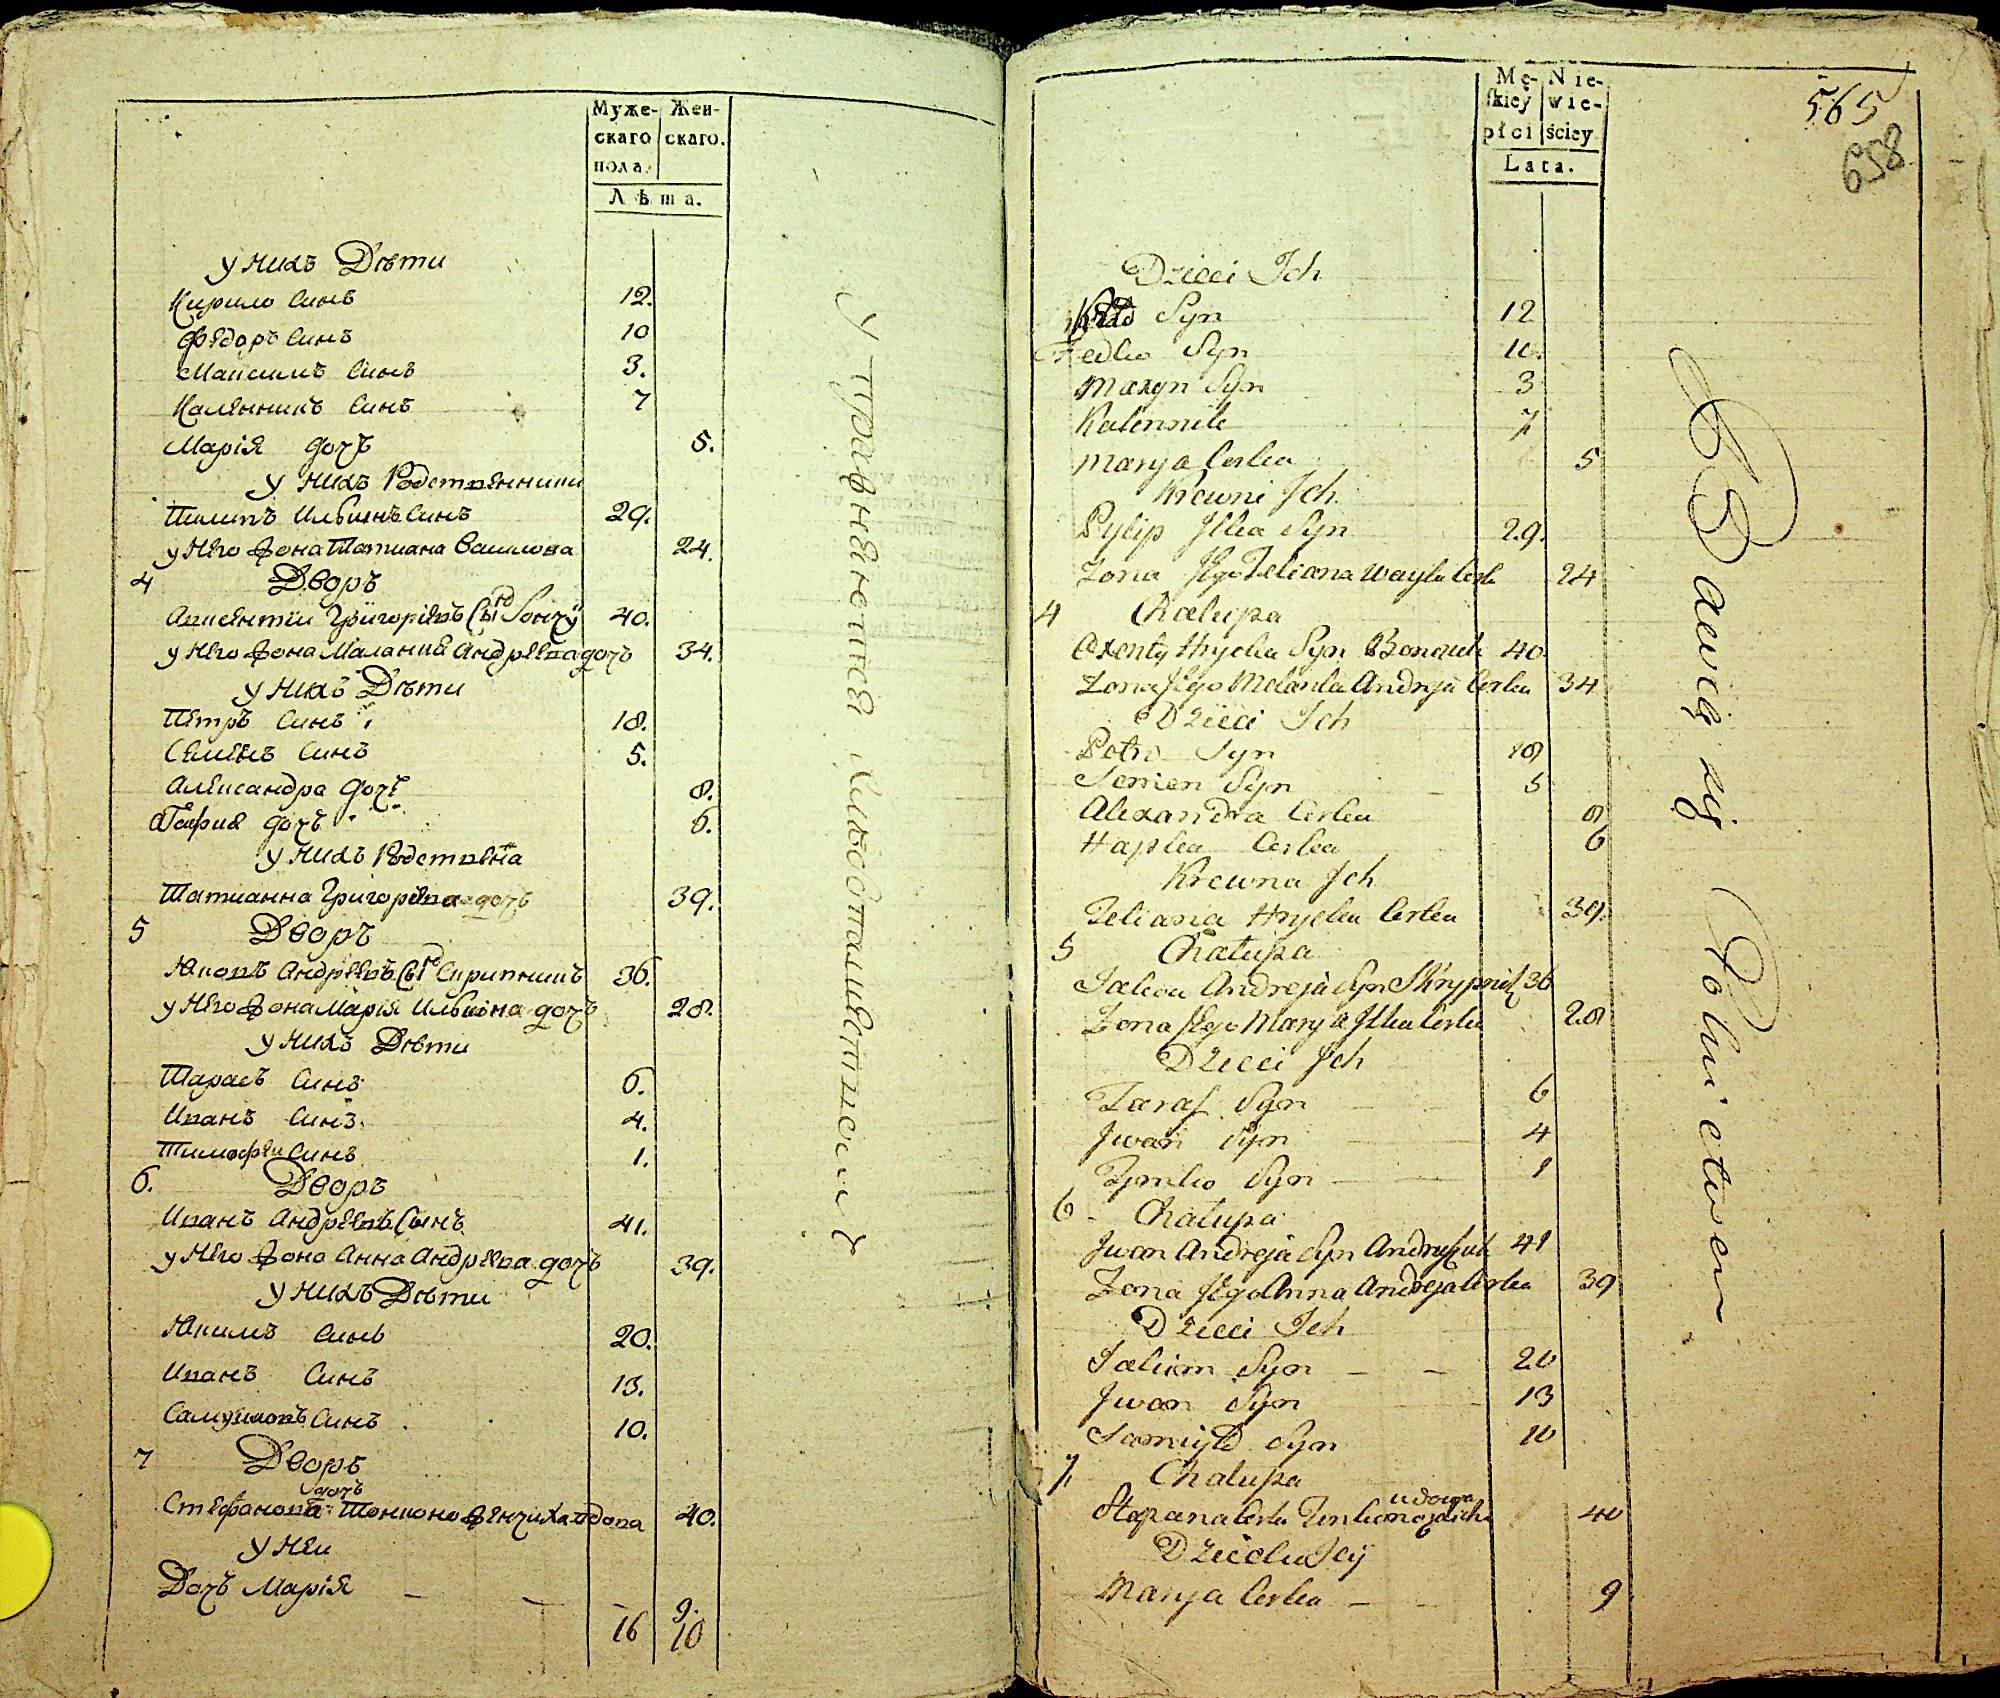 Муже-
скаго
пола.
Жен-
скаго.
Лѣта.
у нихъ Дѣти
Кирило синъ 12.
Федоръ синъ 10
Майсимъ синъ 3.
Каленникъ синъ 7
Марія дочъ 5.
у нихъ Родственники
Пилипъ Илкинъ синъ 29.
у него жона Татиана Василова 24.
4 Дворъ
Авксентии Григоріевъ Сынъ 40.
у него жона Малания Андреева дочъ 34.
у нихъ Дѣти
Петръ синъ 18.
Семенъ синъ 5.
Александра дочъ 8.
Гафия дочъ 6.
у нихъ Родствена
Татианна Григоріева дочъ 39.
5 Дворъ
Яковъ Андреевъ Сынъ Скрипникъ 36.
у него жона Марія Илкина дочъ 28.
у нихъ Дѣти
Тарасъ синъ 6.
Иванъ синъ 4.
Тимофеи синъ 1.
6. Дворъ
Иванъ Андреевъ Сынъ 41.
у него жона Анна Андреева дочъ 39.
у нихъ Дѣти
Якимъ синъ 20.
Иванъ синъ 13.
синъ 10.
7 Дворъ
дочъ
Стефанова вдова 40.
у неи
Дочъ Марія 9.
16 10
Mę-
skiey
płci
Nie-
wie-
ściey
Lata.
565
658
Dzieci Ich
Syn 12
Fedko Syn 10.
Maxym Syn 3
Kalennik 7
Marya Corka 5
Krewni Ich
Pylip Ilka Syn 29.
Zona Jego Tetiana Wasyla Corka 24
4 Chałupa
Oxenty Hrycka Syn Bonczuk 40
Zona Jego Melanka Andreja Corka 34
Dzieci Ich
Petro Syn 18
Semen Syn 5
Alexandra Corka 8
Hapka Corka 6
Krewna Ich
Tetiana Hrycka Corka 39.
5 Chałupa
Jakow Andreja Syn Skrypnik 36
Zona Jego Marya Ilka Corka 28
Dzieci Ich
Taras Syn 6
Iwan Syn 4
Tymko Syn 1
6 Chałupa
Iwan Andreja Syn Andruszuk 41
Zona Jego Anna Andreja Corka 39
Dzieci Ich
Jakim Syn 20
Iwan Syn 13
Samuyło Syn 10
7. Chałupa
wdowa
Stepana Corka 40
Dziecko Jey
Marya Corka 9